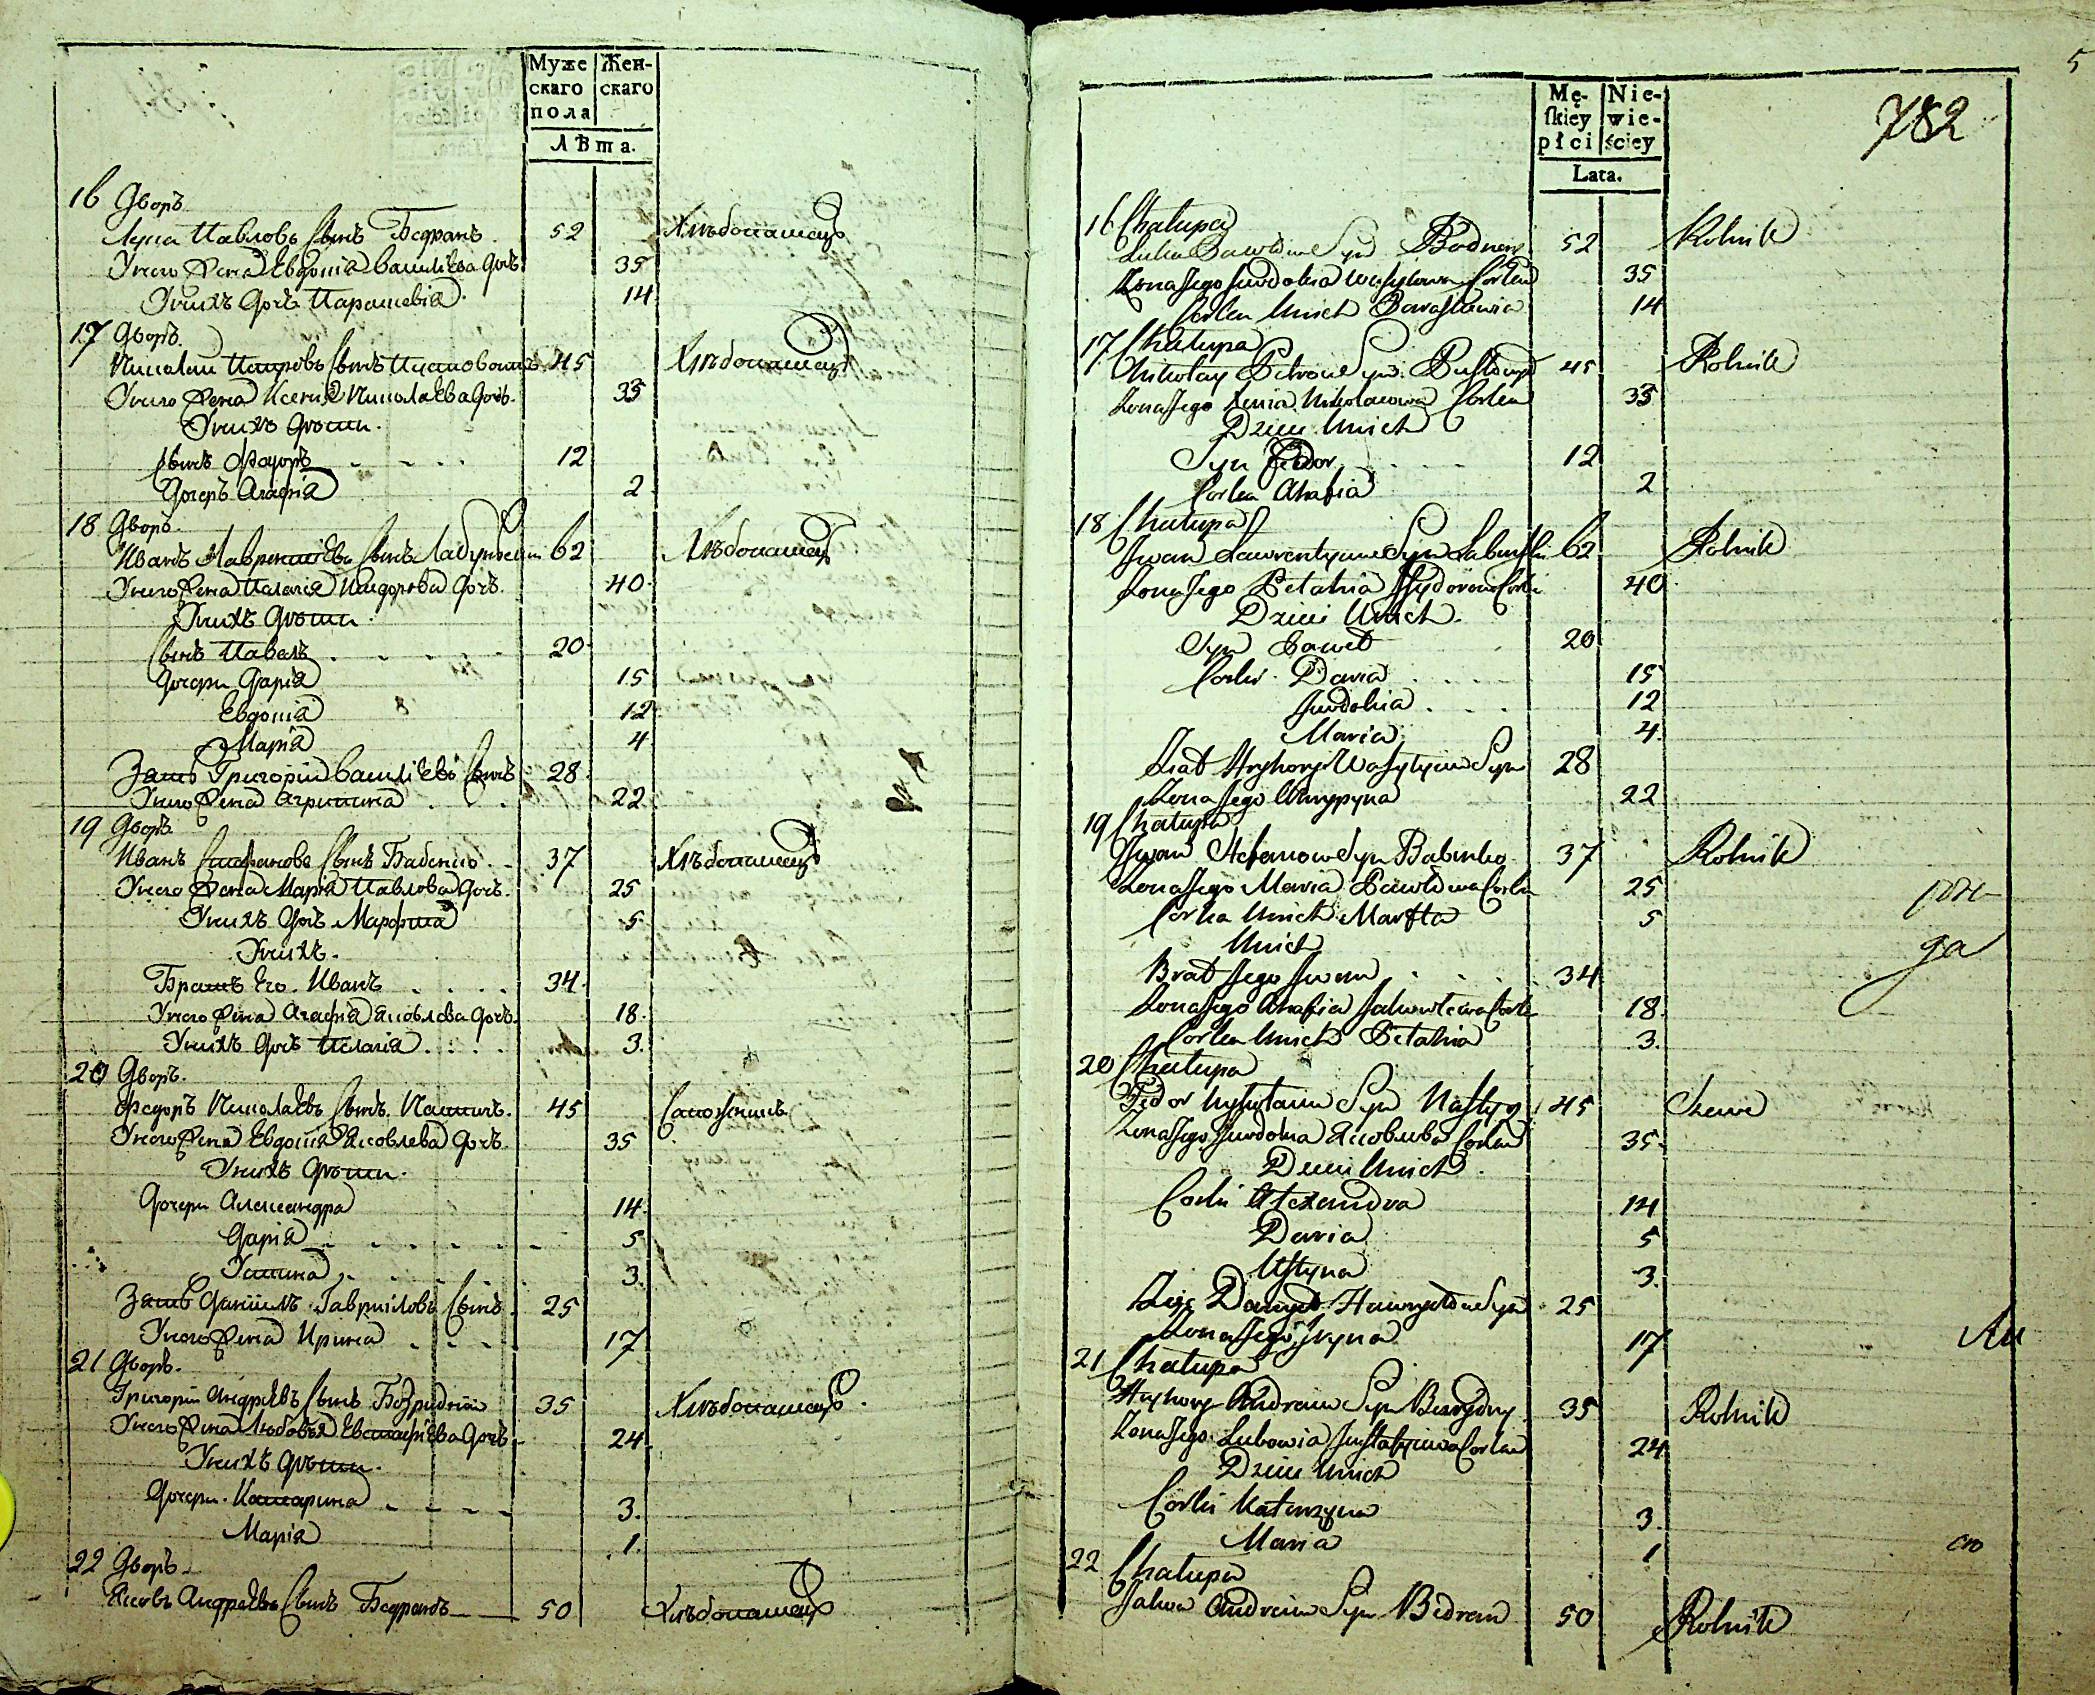 Муже
скаго
пола
Жен-
скаго
Лѣта.
16 Дворъ
Лука Павловъ Сынъ Бедранъ 52 Хлѣбопашецъ
Унего Жена Евдокія Василіева Дочь 35
Унихъ Дочь Параскевія 14
17 Дворъ.
Николай Петровъ Сынъ 45 Хлѣбопашецъ
Унего Жена Ксенія Николаева Дочь. 33
Унихъ Дѣти.
Сынъ Федоръ 12
Дочерь Агафія 2
18 Дворъ.
Иванъ Лаврентіевъ Сынъ 62 Хлѣбопашецъ
Унего Жена Пелагія Сидорова Дочь. 40
Унихъ Дѣти.
Сынъ Павелъ 20
Дочери Дарія 15
Евдокія 12
Марія 4
Зять Григорій Василіевъ Сынъ 28
Унего Жена Агрипина 22
19 Дворъ
Иванъ Стефановъ Сынъ Бабенко 37 Хлѣбопашецъ
Унего Жена Марія Павлова Дочь. 25
Унихъ Дочь Марфта 5
Унихъ.
Братъ Его Иванъ 34
Унего Жена Агафія Яковлева Дочь. 18
Унихъ Дочь Пелагія 3.
20 Дворъ.
Федоръ Николаевъ Сынъ 45 Сапожникъ
Унего Жена Евдокія Яковлева Дочь 35
Унихъ Дѣти.
Дочери Александра 14
Дарія 5
Устина 3.
Зять Даніилъ Гавриловъ Сынъ 25
Унего Жена Ирина 17
21 Дворъ.
Григорій Андреевъ Сынъ 35 Хлѣбопашецъ
Унего Жена Любовья Евстафіева Дочь 24
Унихъ Дѣти.
Дочери Катарина 3.
Марія 1.
22 Дворъ.
Яковъ Андреевъ Сынъ Бедранъ 50 Хлѣбопашецъ
5
Mę-
ſkiey
płci
Nie-
wie-
ściey
Lata.
782
16 Chałupa
Łuka Pawłow Syn 52 Rolnik
Zona Jego Jewdokia Wasylowa Corka 35
Corka Unich Paraskewia 14
17 Chałupa
Mikołay Petrow Syn 45 Rolnik
Zona Jego Xenia Nikołaiowa Corka 33
Dzieci Unich
Syn Fedor 12
Corka Ahafia 2
18 Chałupa
Jwan Ławrentyiew Syn 62 Rolnik
Zona Jego Pełahia Sydorowa Corka 40
Dzieci Unich.
Syn Paweł 20
Corki Daria 15
Jewdokia 12
Maria 4.
Ziat Hryhory Wasylyiew Syn 28
Zona Jego Ahrypyna 22
19 Chałupa
Jwan Stefanow Syn Babenko 37 Rolnik
Zona Jego Maria Pawłowa Corka 25
Corka Unich Marfta 5
Unich
Brat Jego Jwan 34
Zona Jego Ahafia Jakowlewa Corka 18
Corka Unich Pełahia 3.
20 Chałupa
Fedor Syn 45 Szewc
Zona Jego Jewdokia Яковлева Corka 35
Dzieci Unich.
Corki Alexandra 14
Daria 5
Ustyna 3.
Danyło Hawryłow Syn 25
Zona Jego Jryna 17
21 Chałupa
Hryhory Andreiew Syn 35 Rolnik
Zona Jego Lubowia Corka 24
Dzieci Unich
Corki Katerzyna 3.
Maria 1
22 Chałupa
Jakow Andreiew Syn Bedran 50 Rolnik
ga